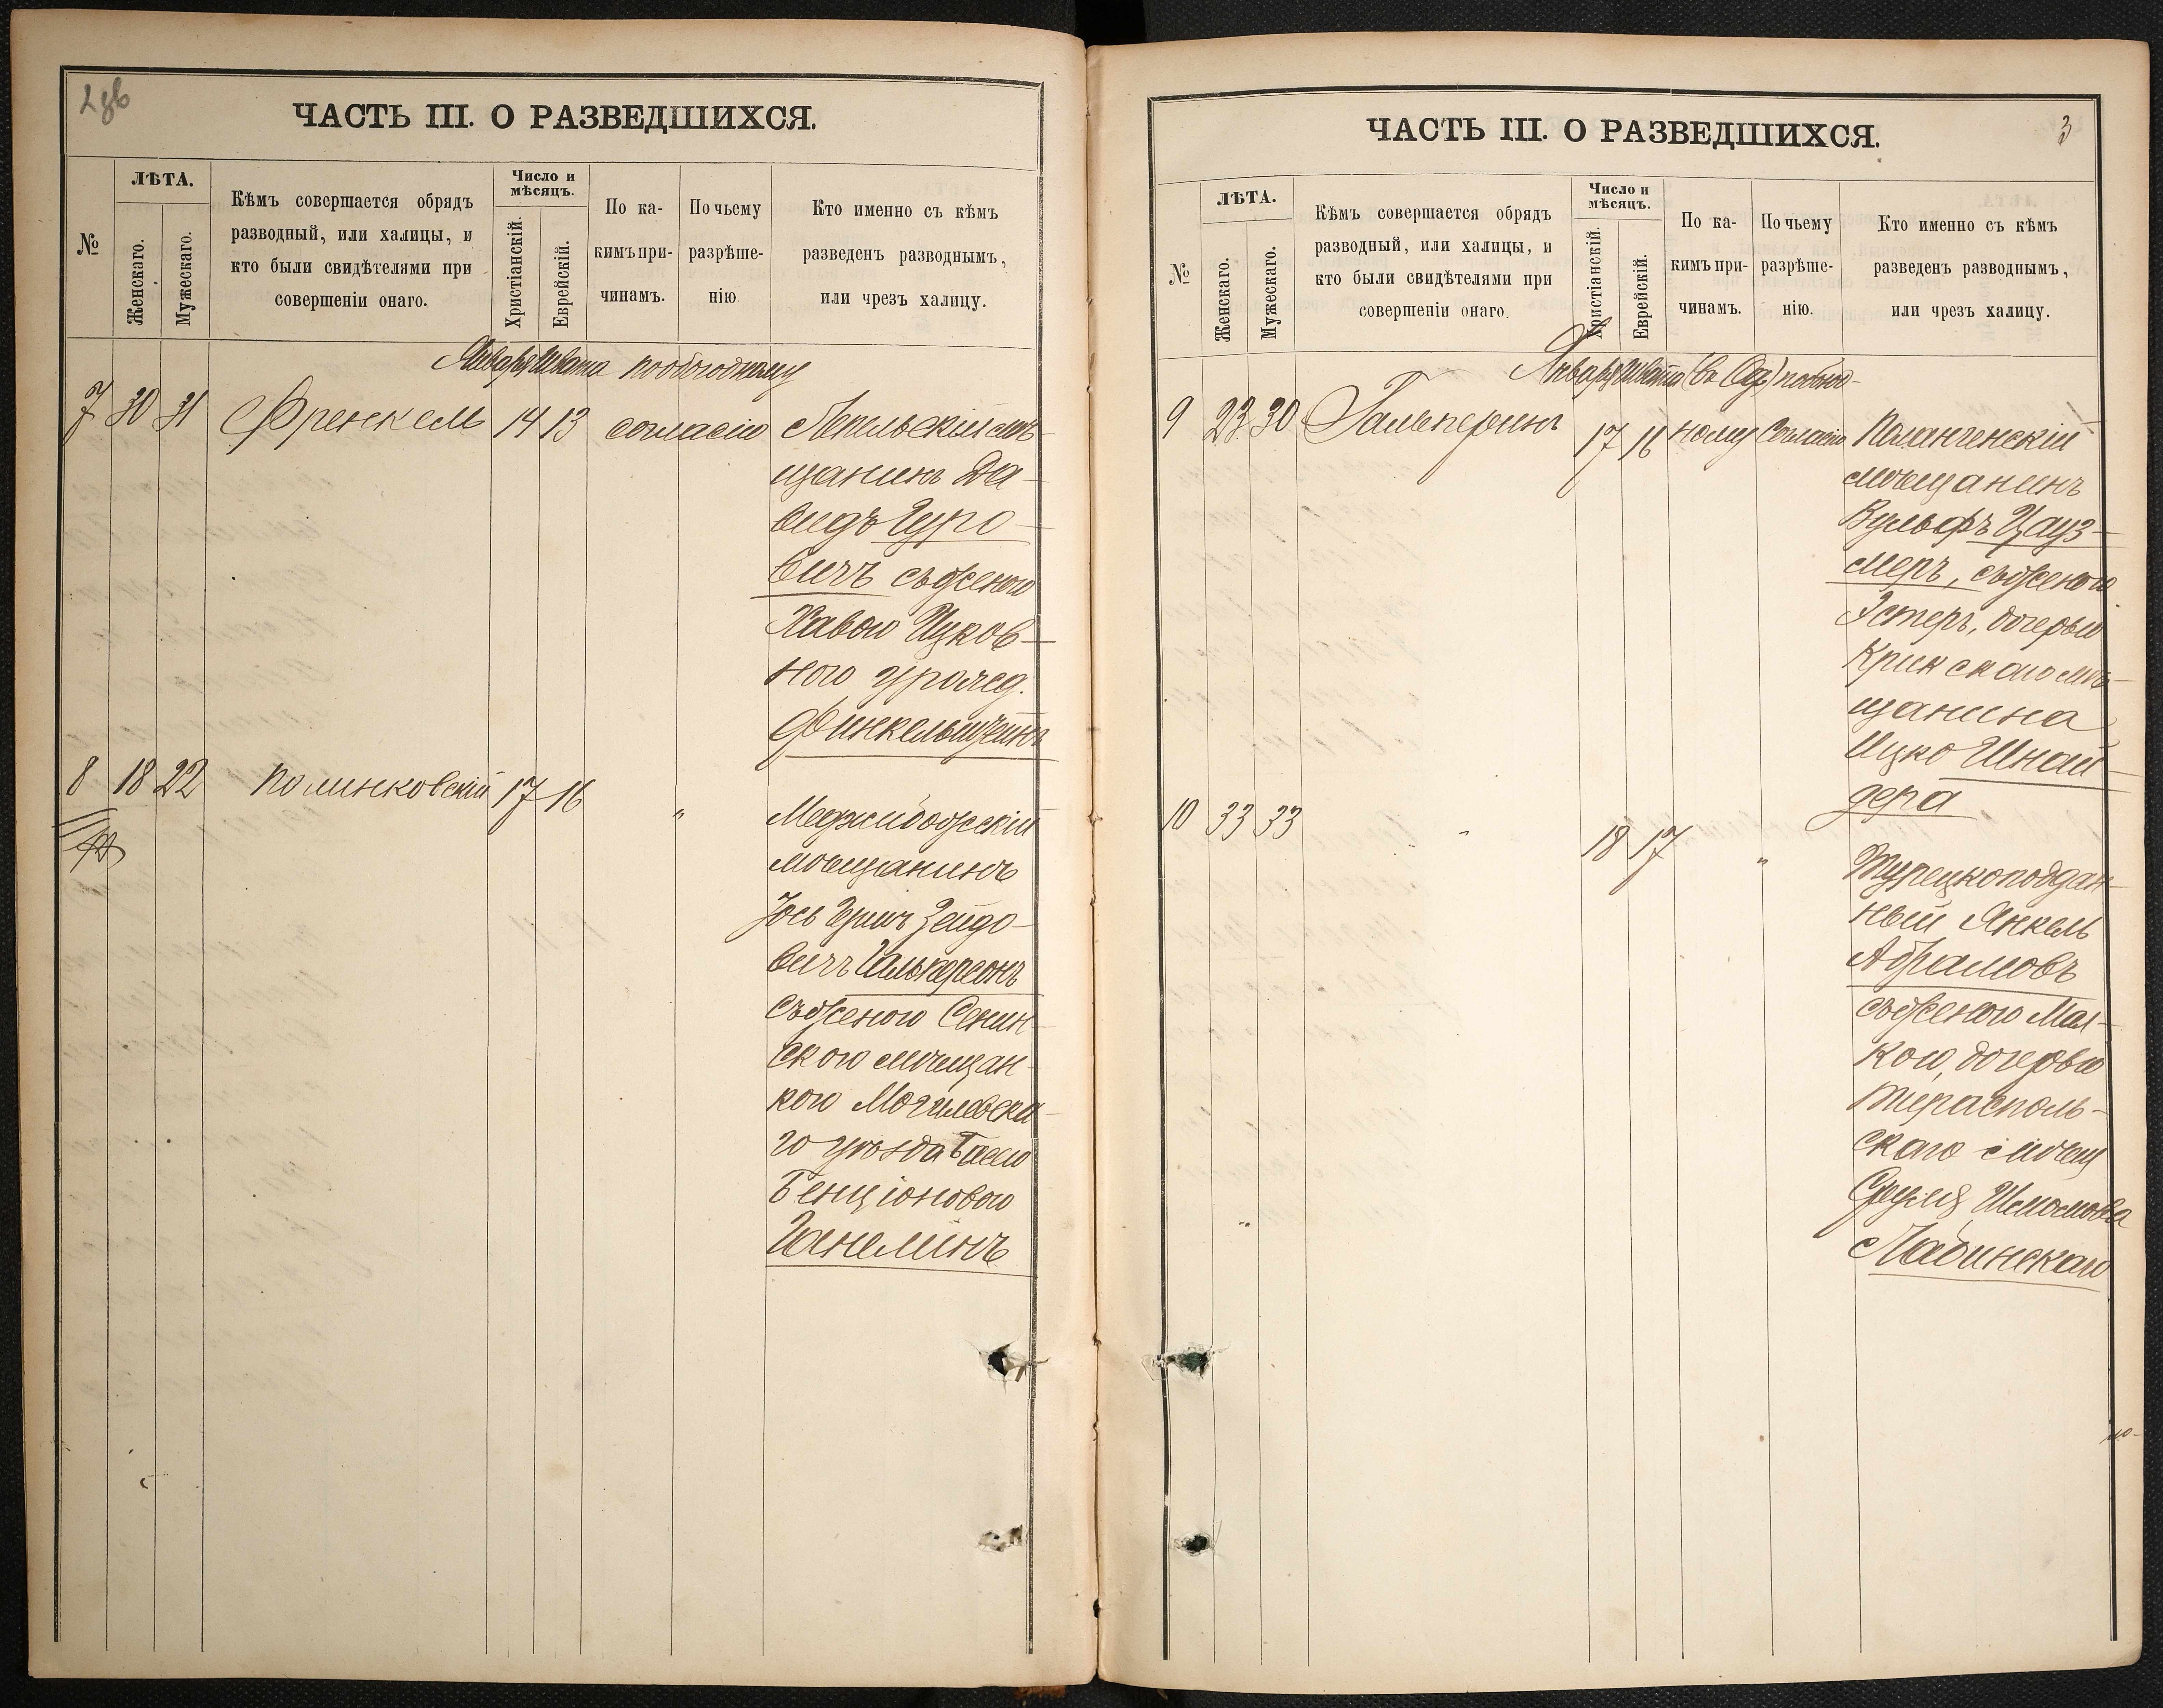 ЧАСТЬ III. О РАЗВЕДШИХСЯ.
№
ЛѢТА.
Женскаго.
Мужескаго.
Кѣмъ совершается обрядъ
разводный, или халицы, и
кто были свидѣтелями при
совершеніи онаго.
Число и
мѣсяцъ.
Христіанскій.
Еврейскій.
По ка-
кимъ при-
чинамъ.
По чьему
разрѣше-
нію.
Кто именно съ кѣмъ
разведенъ разводнымъ,
или чрезъ халицу.
Января Швата
7 30 31 Френкель 14 13 согласію
щанинъ Да-
видъ Гуро-
вичъ съ женою
Хавою Ицков-
ною урожд.
Финкельштейнъ
8 18 22 Полинковскій 17 16 "
Меджибожскій
мѣщанинъ
Іось Гершъ Зейдо-
вичъ
съ женою Сенин-
скою мѣщан-
кою Могилевска-
го уѣзда Басею
Бенціоновою
ЧАСТЬ III. О РАЗВЕДШИХСЯ.
3
№
ЛѢТА.
Женскаго.
Мужескаго.
Кѣмъ совершается обрядъ
разводный, или халицы, и
кто были свидѣтелями при
совершеніи онаго.
Число и
мѣсяцъ.
Христіанскій.
Еврейскій.
По ка-
кимъ при-
чинамъ.
По чьему
разрѣше-
нію.
Кто именно съ кѣмъ
разведенъ разводнымъ,
или чрезъ халицу.
Января Швата
9 23 30 Гальперинъ 17 16 ному Согласію Полангенскій
мѣщанинъ
Вульфъ Цауз-
меръ, съ женою
Эстеръ, дочерью
Крикскаго мѣ-
щанина
Ицко Шнай-
дера
10 33 33 " 18 17 "
Турецкоподдан-
ный Янкель
Абрамовъ
съ женою Мал-
кою, дочерью
Тирасполь-
скаго мѣщ
Шмомова
Лабинскаго